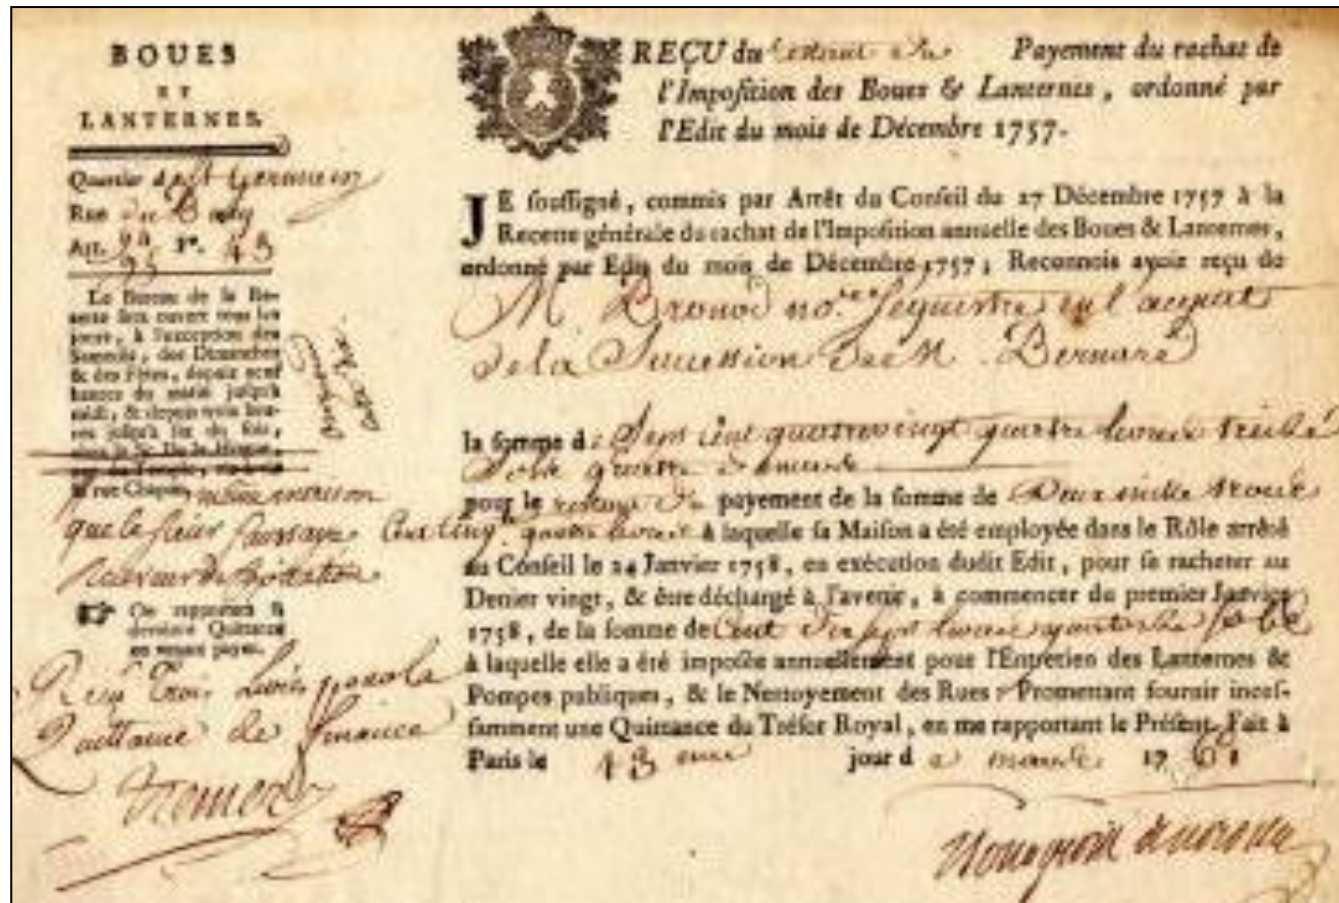 BOUES
ET
LANTERNES.
Quartier d St Germain
Rue du Bacq
Art. 94 Fo. 43
95
Le Bureau de la Re-
cette sera ouvert tous les
jours, à l'exception des
Samedis, des Dimanches
& des Fêtes, depuis neuf
heures du matin jusqu'à
midi, & depuis trois heu-
res jusqu'à six du soir,
chez le Sr. De la
rue du Temple,
la rue Chapon, même maison
que le sieur
Receveur de
☞ On rapportera la
derniere Quittance
en venant payer.
Reçu Trois Livres pour la
Quittance de finance
REÇU du restant de Payement du rachat de
l'Imposition des Boues & Lanternes, ordonné par
l'Edit du mois de Décembre 1757.
JE soussigné, commis par Arrêt du Conseil du 27 Décembre 1757 à la
Recette générale du rachat de l'Imposition annuelle des Boues & Lanternes,
ordonné par Edit du mois de Décembre 1757; Reconnois avoir reçu de
M. Bronod no.re Sequestre en l'acquit
de la Succession de M. Bernard
la somme de Sept cent quatrevingt quatre livres treize
Sols quatre deniers
pour le restant du payement de la somme de Deux mille trois
Cent Cinq.te quatre livres à laquelle sa Maison a été employée dans le Rôle arrêté
au Conseil le 24 Janvier 1758, en exécution dudit Edit, pour se racheter au
Denier vingt, & être déchargé à l'avenir, à commencer du premier Janvier
1758, de la somme de Cent dix sept livres quatorze sols
à laquelle elle a été imposée annuellement pour l'Entretien des Lanternes &
Pompes publiques, & le Nettoyement des Rues: Promettant fournir inces-
samment une Quittance du Trésor Royal, en me rapportant le Présent. Fait à
Paris le 13 eme jour d e mars 17 61